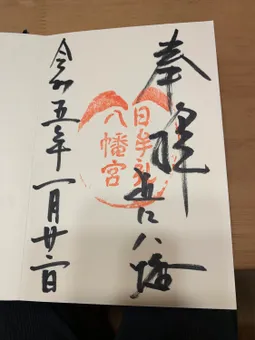 奉拝 近江八幡
日牟礼
八幡宮
令和五年一月廿二日